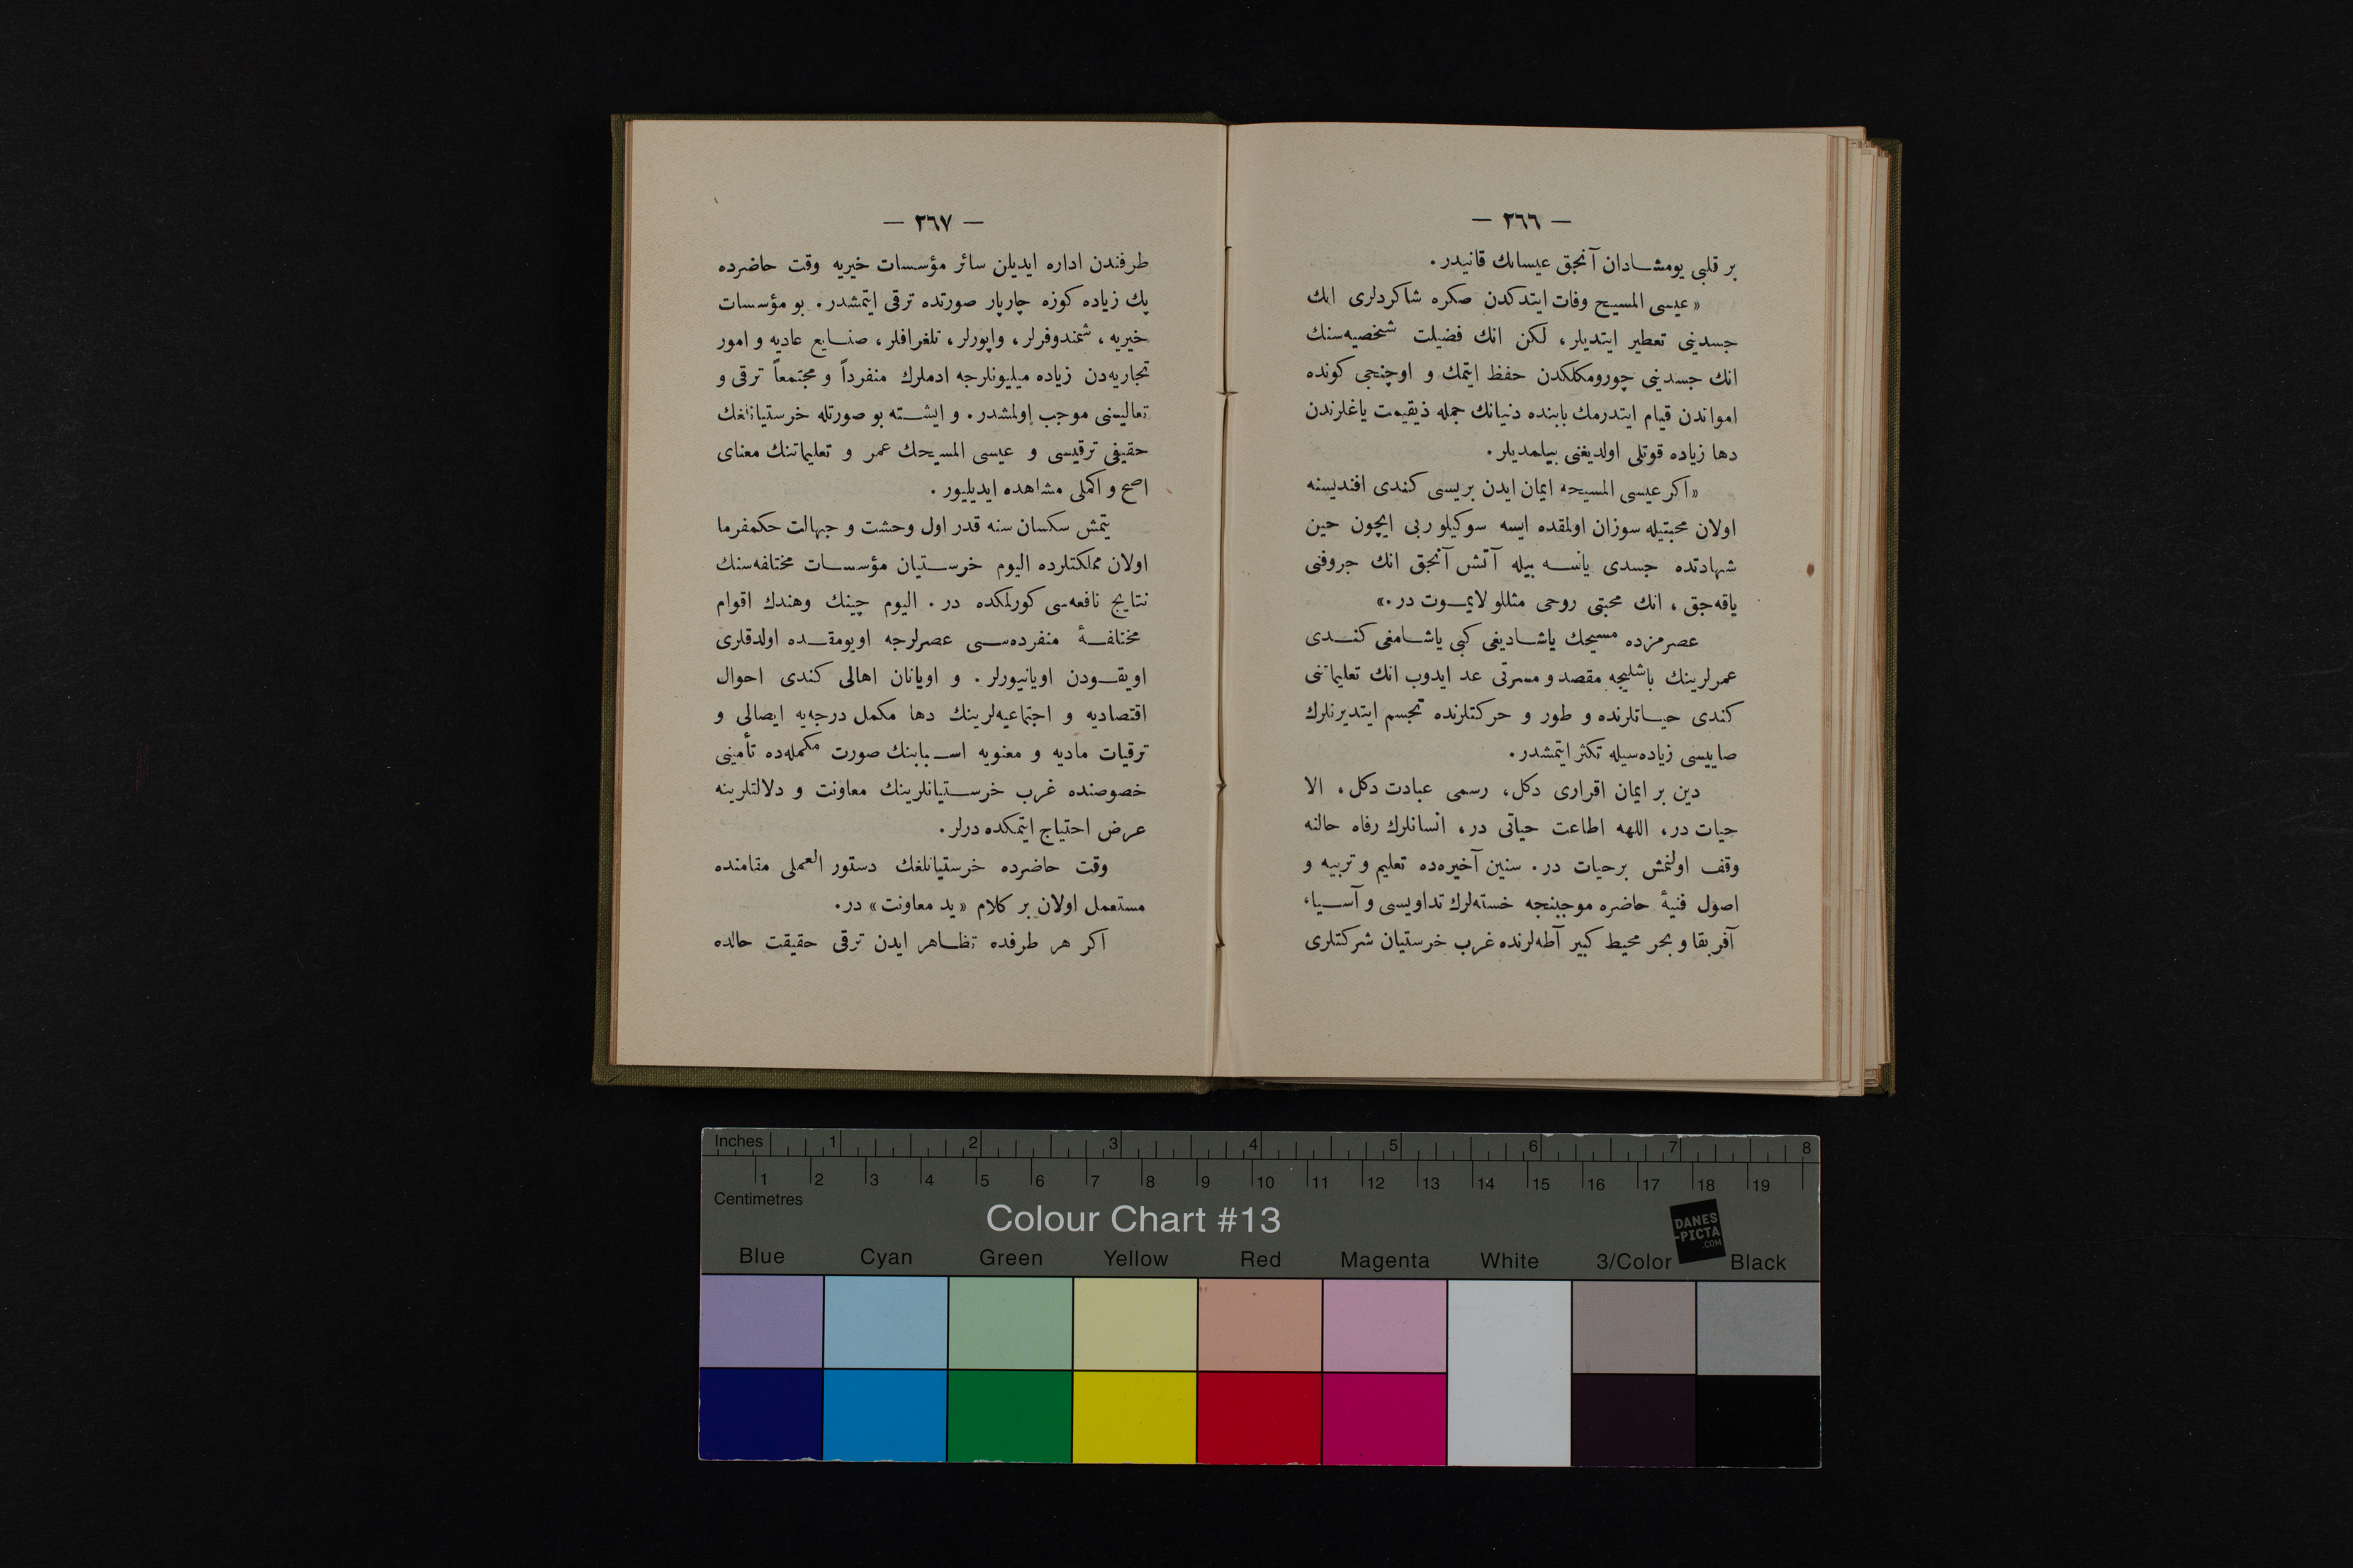 — ٢٦٦ —
بر قلبی یومشادان آنجق عیسانك قانیدر.
«عیسی المسیح وفات ایتدكدن صكره شاكردلری انك
جسدینی تعطیر ایتدیلر، لكن انك فضیلت شخصیه‌سنك
انك جسدینی چورومكلكدن حفظ ایتمك و اوچنجی كونده
امواتدن قیام ایتدرمك بابنده دنیانك جمله ذیقیمت یاغلرندن
دها زیاده قوتلی اولدیغنی بیلمدیلر.
«اكر عیسی المسیحه ایمان ایدن بریسی كندی افندیسنه
اولان محبتیله سوزان اولمقده ایسه سوكیلو ربی ایچون حین
شهادتده جسدی یانسه بیله آتش آنجق انك جروفنی
یاقه‌جق، انك محبتی روحی مثللو لایموت در.»
عصرمزده مسیحك یاشادیغی كبی یاشامغی كندی
عمرلرینك باشلیجه مقصد و مسرتی عد ایدوب انك تعلیماتنی
كندی حیاتلرنده و طور و حركتلرنده تجسم ایتدیرنلرك
صاییسی زیاده‌سیله تكثر ایتمشدر.
دین بر ایمان اقراری دكل، رسمی عبادت دكل، الا
حیات در، اللهه اطاعت حیاتی در، انسانلرك رفاه حالنه
وقف اولنمش برحیات در. سنین آخیره‌ده تعلیم و تربیه و
اصول فنیهٔ حاضره موجبنجه خسته‌لرك تداویسی و آسیا،
آفریقا و بحر محیط كبیر آطه‌لرنده غرب خرستیان شركتلری
— ٢٦٧ —
طرفندن اداره ایدیلن سائر مؤسسات خیریه وقت حاضرده
پك زیاده كوزه چارپار صورتده ترقی ایتمشدر. بو مؤسسات
خیریه، شمندوفرلر، واپورلر، تلغرافلر، صنایع عادیه و امور
تجاریه‌دن زیاده میلیونلرجه ادملرك منفرداً و مجتمعاً ترقی و
تعالیسنی موجب اولمشدر. و ایشته بو صورتله خرستیانلغك
حقیقی ترقیسی و عیسی المسیحك عمر و تعلیماتنك معنای
اصح و اكملی مشاهده ایدیلیور.
یتمش سكسان سنه قدر اول وحشت و جهالت حكمفرما
اولان مملكتلرده الیوم خرستیان مؤسسات مختلفه‌سنك
نتایج نافعه‌سی كورلمكده در. الیوم چینك وهندك اقوام
مختلفهٔ منفرده‌سی عصرلرجه اویومقده اولدقلری
اویقودن اویانیورلر. و اویانان اهالی كندی احوال
اقتصادیه و اجتماعیه‌لرینك دها مكمل درجه‌یه ایصالی و
ترقیات مادیه و معنویه اسبابنك صورت مكمله‌ده تأمینی
خصوصنده غرب خرستیانلرینك معاونت و دلالتلرینه
عرض احتیاج ایتمكده درلر.
وقت حاضرده خرستیانلغك دستور العملی مقامنده
مستعمل اولان بر كلام «ید معاونت» در.
اكر هر طرفده تظاهر ایدن ترقی حقیقت حالده
Inches 1 2 3 4 5 6 7 8
1 2 3 4 5 6 7 8 9 10 11 12 13 14 15 16 17 18 19
Centimetres
Colour Chart #13
DANES
-PICTA
.COM
Blue Cyan Green Yellow Red Magenta White 3/Color Black